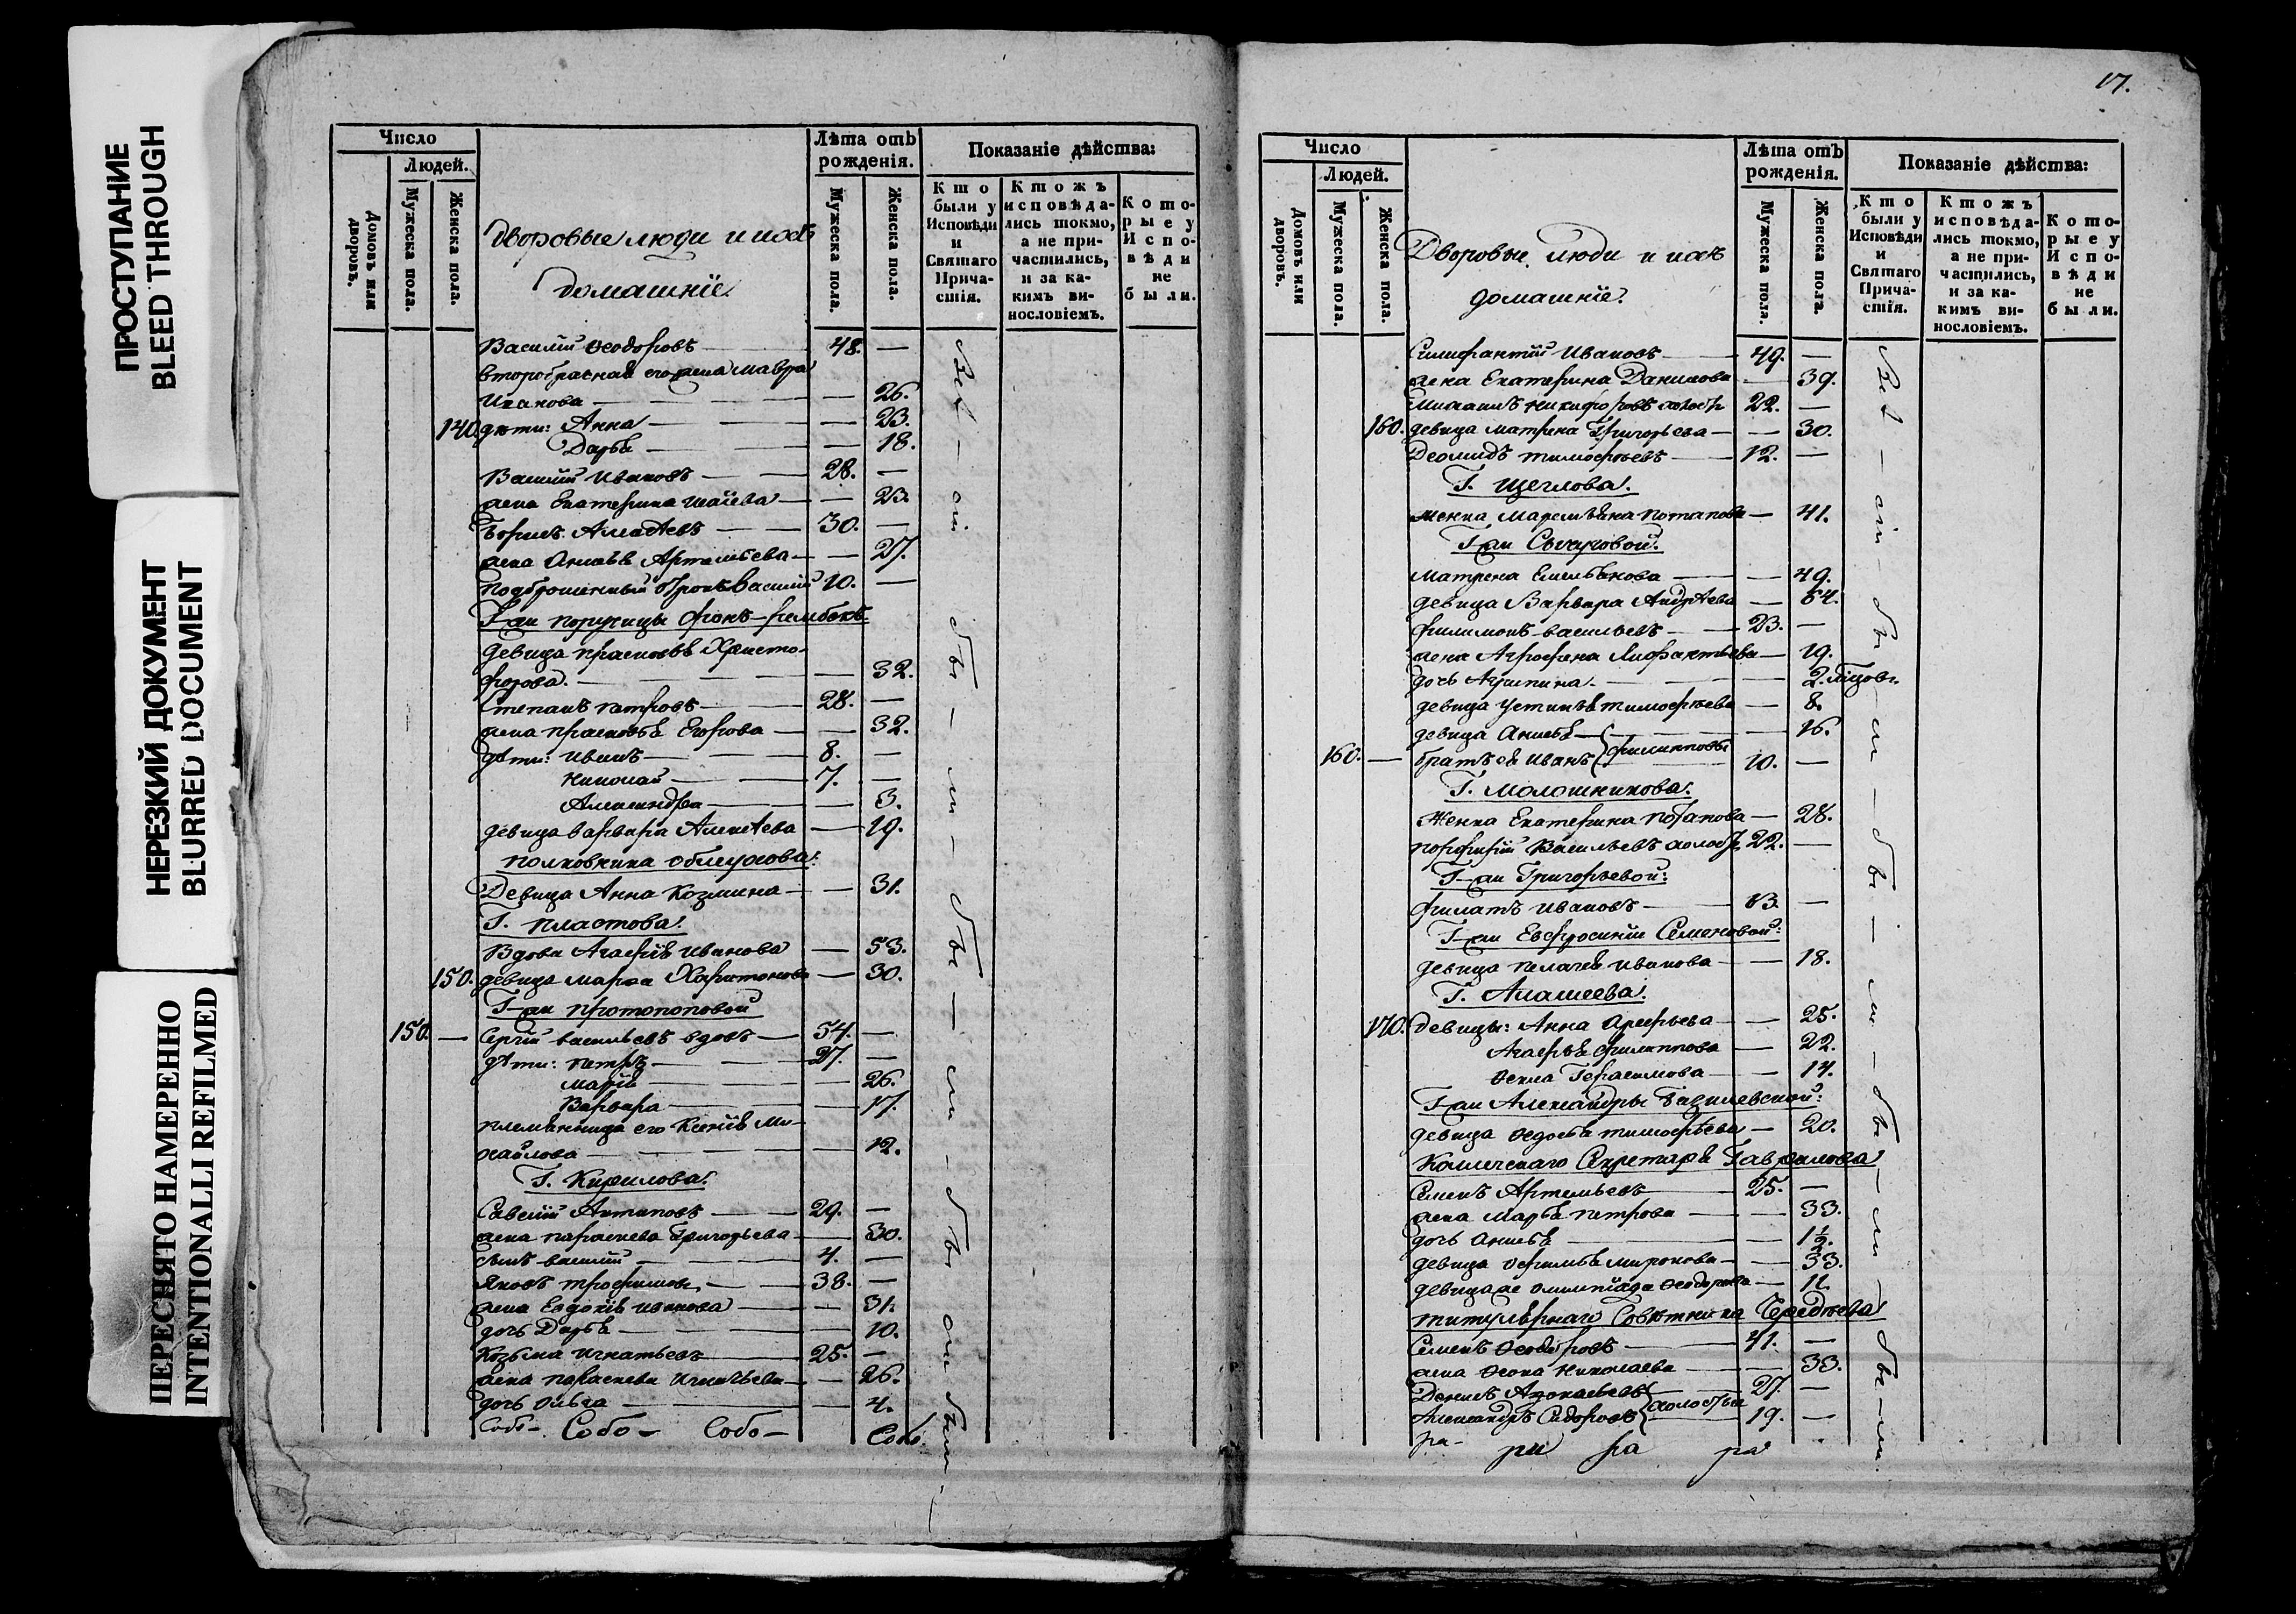 ПРОСТУПАНИЕ
BLEED THROUGH
НЕРЕЗКИЙ ДОКУМЕНТ
BLURRED DOCUMENT
ПЕРЕСНЯТО НАМЕРЕННО
INTENTIONALLI REFILMED
Число
Людей.
Домовъ или дворовъ.
Мужеска пола.
Женска пола.
Дворовые люди и ихъ
домашніе.
Лѣта отъ рожденія.
Мужеска пола.
Женска пола.
Показаніе дѣйства:
Кто были у Исповѣди и Святаго Прича-стія.
Ктожъ исповѣда-лись токмо, а не при-частились, и за ка-кимъ ви-нословіемъ.
Кото-рые у Испо-вѣди не были.
Василій Ѳеодоровъ — 48. —
второбрачная его жена Мавра
Иванова — — 26.
140. дѣти: Анна — — 23.
Дарья — — 18.
Василій Ивановъ — 28. —
жена Екатерина Исаіева — — 23.
Борисъ Алексѣевъ — 30. —
жена Анисья Артемьева — — 27.
Подброшенный отрокъ Василій 10. —
Г-жи порутчицы фонъ-
девица Прасковья Христо-
форова. — — 32.
Степанъ Петровъ — 28. —
жена Прасковья Егорова — — 32.
дѣти: Иванъ — 8. —
Николай — 7. —
Александра — — 3.
девица Варвара Алексѣева — 19.
Полковника Облеухова:
Девица Анна Козмина — — 31.
Г. Пластова:
Вдова Агафія Иванова — 53.
150. девица Марѳа Харитонова — 30.
Г-жи Протопоповой
150. — Сергій Васильевъ вдовъ — 54. —
дѣти: Петръ — 27. —
Марія — — 26.
Варвара — — 17.
племянница его Ксенія Ми-
хайлова — — 12.
Г. Кирилова:
Савелій Антиповъ — 29. —
жена Параскева Григорьева — 30.
сынъ Василій — 4. —
Яковъ Трофимовъ — 38. —
жена Евдокія Иванова — — 31.
дочь Дарья — — 10.
Козьма Игнатьевъ — 25. —
жена Параскева Игнатьева — — 26.
дочь Ольга — — 4.
Собо- Собо- Собо- Собо.
17.
Число
Людей.
Домовъ или дворовъ.
Мужеска пола.
Женска пола.
Дворовые люди и ихъ
домашніе.
Лѣта отъ рожденія.
Мужеска пола.
Женска пола.
Показаніе дѣйства:
Кто были у Исповѣди и Святаго Прича-стія.
Ктожъ исповѣда-лись токмо, а не при-частились, и за ка-кимъ ви-нословіемъ.
Кото-рые у Испо-вѣди не были.
Ивановъ — 49. —
жена Екатерина Данилова — 39.
Михаилъ Никифоровъ холостъ 22. —
160. девица Матрена Григорьева — — 30.
Деомидъ Тимофѣевъ — 12. —
Г. Щеглова:
Женка Маремьяна Потапова — 41.
Г-жи
Матрена Емельянова — — 49.
девица Варвара Андрѣева — 64.
Филимонъ Васильевъ — 23. —
жена Агрофена — 19.
дочь Акулина. — — 2.
девица Устинья Тимофѣева — 8.
девица Анисья — 16.
160. — братъ ея Иванъ Филиповы 10. —
Г. Молошникова:
Женка Екатерина Потапова — 28.
Порфирій Васильевъ холостъ 22. —
Г-жи Григорьевой:
Филатъ Ивановъ — 13. —
Г-жи Евфросиніи Семеновой:
девица Пелагея Иванова — — 18.
Г. Алашеева:
170. девицы: Анна Арефьева — — 25.
Агафья Филиппова — 22.
Ѳекла Герасимова — — 14.
Г-жи Александры Василевской:
девица Ѳедосья Тимофѣева — 20.
Коллежскаго Секретаря Гаврилова
Семенъ Артемьевъ — 25. —
жена Марья Петрова — — 33.
дочь Анисья — — 1½.
девица Ефимья Миронова — — 33.
девица же Олимпіада Ѳеодорова — 11.
Титулярнаго Совѣтника
Семенъ Ѳеодоровъ — 41. —
жена Ѳекла Николаева — — 33.
Денисъ — 27. —
Александръ Сидоровъ холосты — 19. —
ра- ра ра ра